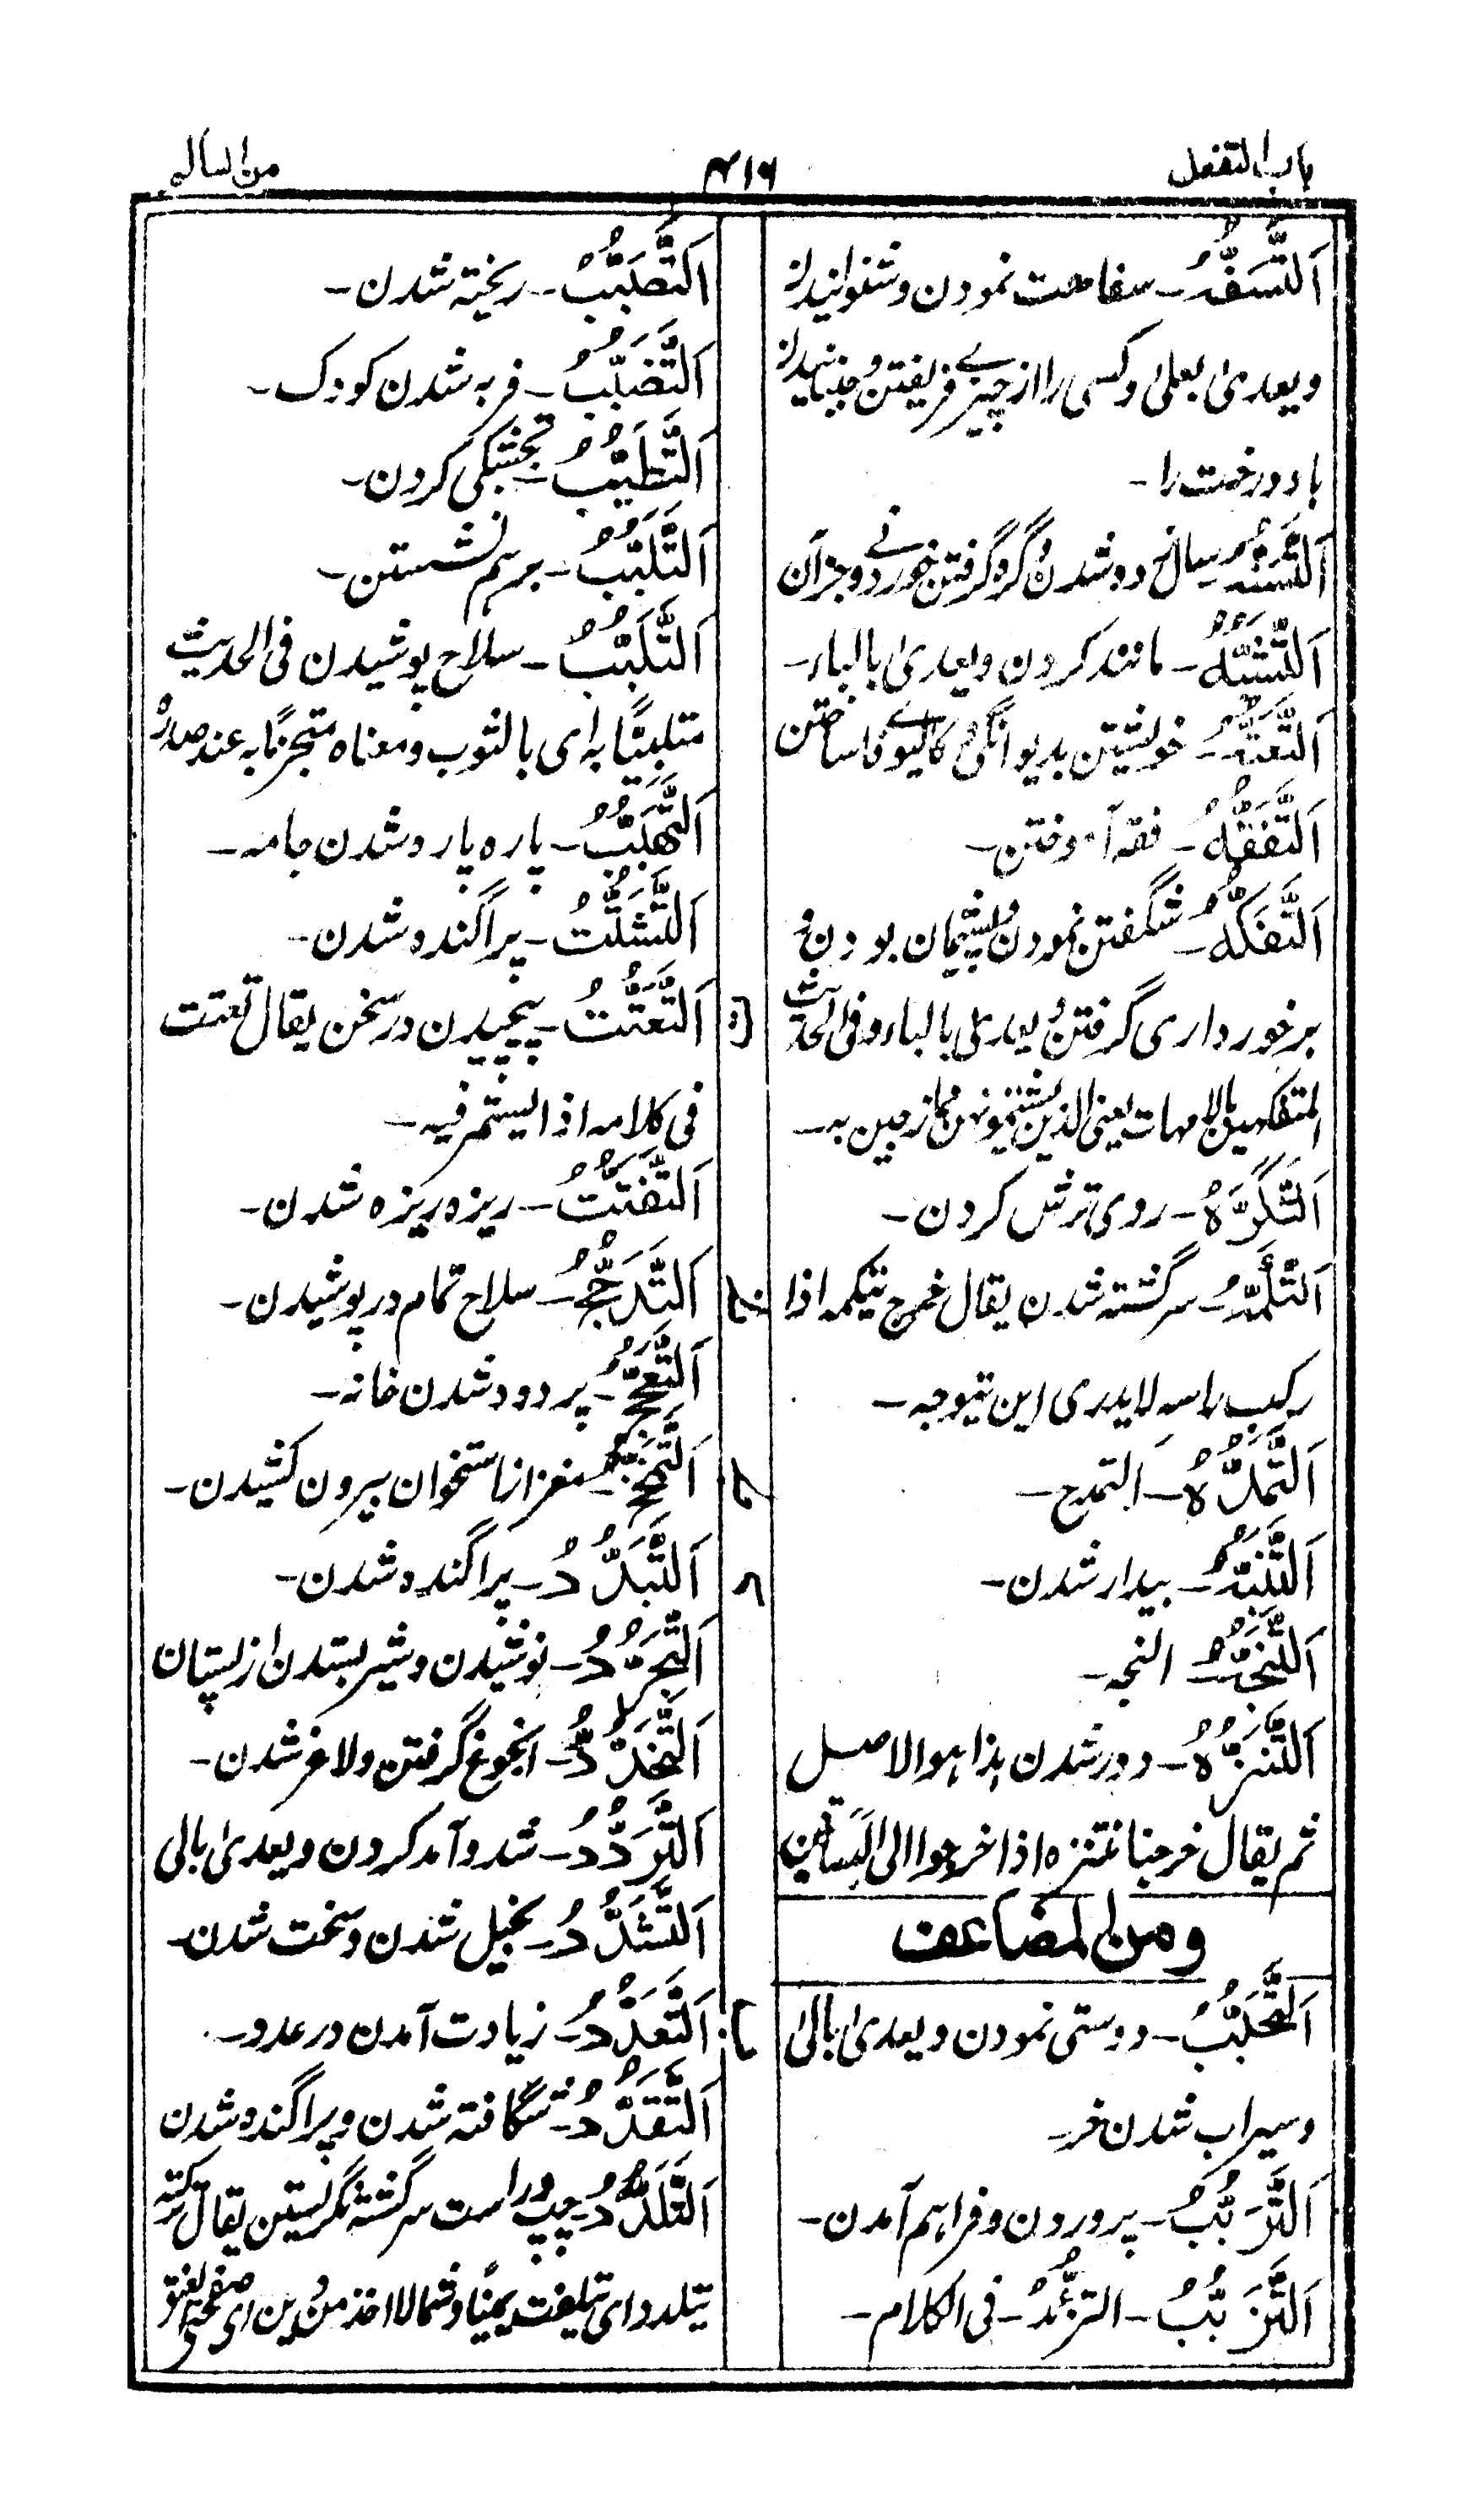 باب التفعل
۴۱۶
من السالم
اَلتَّسَفُّهُ ـ سفاهت نمودن و شنوانیدن
و یعدی بعلی و کسی را از چیزے فریفتن و جنبانیدن
باد درخت را ـ
اَلتَّسَنُّهُ سال زده شدن و گره گرفتن خوردنے و جز آن
اَلتَّشَبُّهُ ـ مانند کردن و یعدی بالباء ـ
اَلتَّعَتُّهُ ـ خویشتن بدیوانگی و کالیوگی ساختن
اَلتَّفَقُّهُ ـ فقه آموختن ـ
اَلتَّفَكُّهُ ـ شگفتن نمودن و پشیمان بودن و
برخورداری گرفتن و یعدی بالباء و فی الحدیث
المتفکهین بالامهات یعنی الذین یشتمونهن ممازحین به ـ
اَلتَّكَرُّهُ ـ روی ترش کردن ـ
اَلتَّكَمُّهُ ـ سرگشته شدن یقال خرج یتکمه اذا
رکب راسه لا یدری این یتوجه ـ
اَلتَّمَدُّهُ ـ اَلتمدح ـ
اَلتَّنَبُّهُ ـ بیدار شدن ـ
اَلتَّنَجُّهُ النجه ـ
اَلتَّنَزُّهُ ـ دور شدن هذا هو الاصل
ثم یقال خرجنا نتنزه اذا خرجوا الی البساتین
و من المضاعف
اَلتَّحَبُّبُ ـ دوستی نمودن و یعدی بالی
و سیراب شدن خر ـ
اَلتَّرَبُّبُ ـ پروردن و فراهم آمدن ـ
اَلتَّزَبُّبُ ـ التزبد ـ فی الکلام ـ
اَلتَّصَبُّبُ ـ ریخته شدن ـ
اَلتَّضَبُّبُ ـ فربه شدن کودک ـ
اَلتَّطَبُّبُ ـ بجشکی کردن ـ
اَلتَّلَبُّبُ ـ برهم نشستن ـ
اَلتَّلَبُّبُ ـ سلاح پوشیدن فی الحدیث
متلببًا به ای بالثوب و معناه متحزمًا به عند صدره
اَلتَّهَبُّبُ ـ پاره پاره شدن جامه ـ
اَلتَّشَتُّتُ ـ پراگنده شدن ـ
ت اَلتَّعَتُّتُ ـ پیچیدن در سخن یقال تعتت
فی کلامه اذا لم یستمر فیه ـ
اَلتَّفَتُّتُ ـ ریزه ریزه شدن ـ
ج اَلتَّدَجُّجُ ـ سلاح تمام در پوشیدن ـ
اَلتَّعَجُّجُ ـ پر دود شدن خانه ـ
خ اَلتَّمَخُّخُ ـ مغز از استخوان بیرون کشیدن ـ
د اَلتَّبَدُّدُ ـ پراگنده شدن ـ
نوشیدن و شیر بستدن از پستان
اَلتَّخَدُّدُ ـ انجوغ گرفتن و لاغر شدن ـ
اَلتَّرَدُّدُ ـ شد و آمد کردن و یعدی بالی
اَلتَّشَدُّدُ ـ بخیل شدن و سخت شدن ـ
اَلتَّعَدُّدُ ـ زیادت آمدن در عدد ـ
اَلتَّقَدُّدُ ـ شگافته شدن و پراگنده شدن
اَلتَّلَدُّدُ ـ چپ و راست سرگشته نگریستن یقال ترکته
یتلدد ای یتلفت یمینًا و شمالا اخذ من لدیدین ای صفحتی العنق